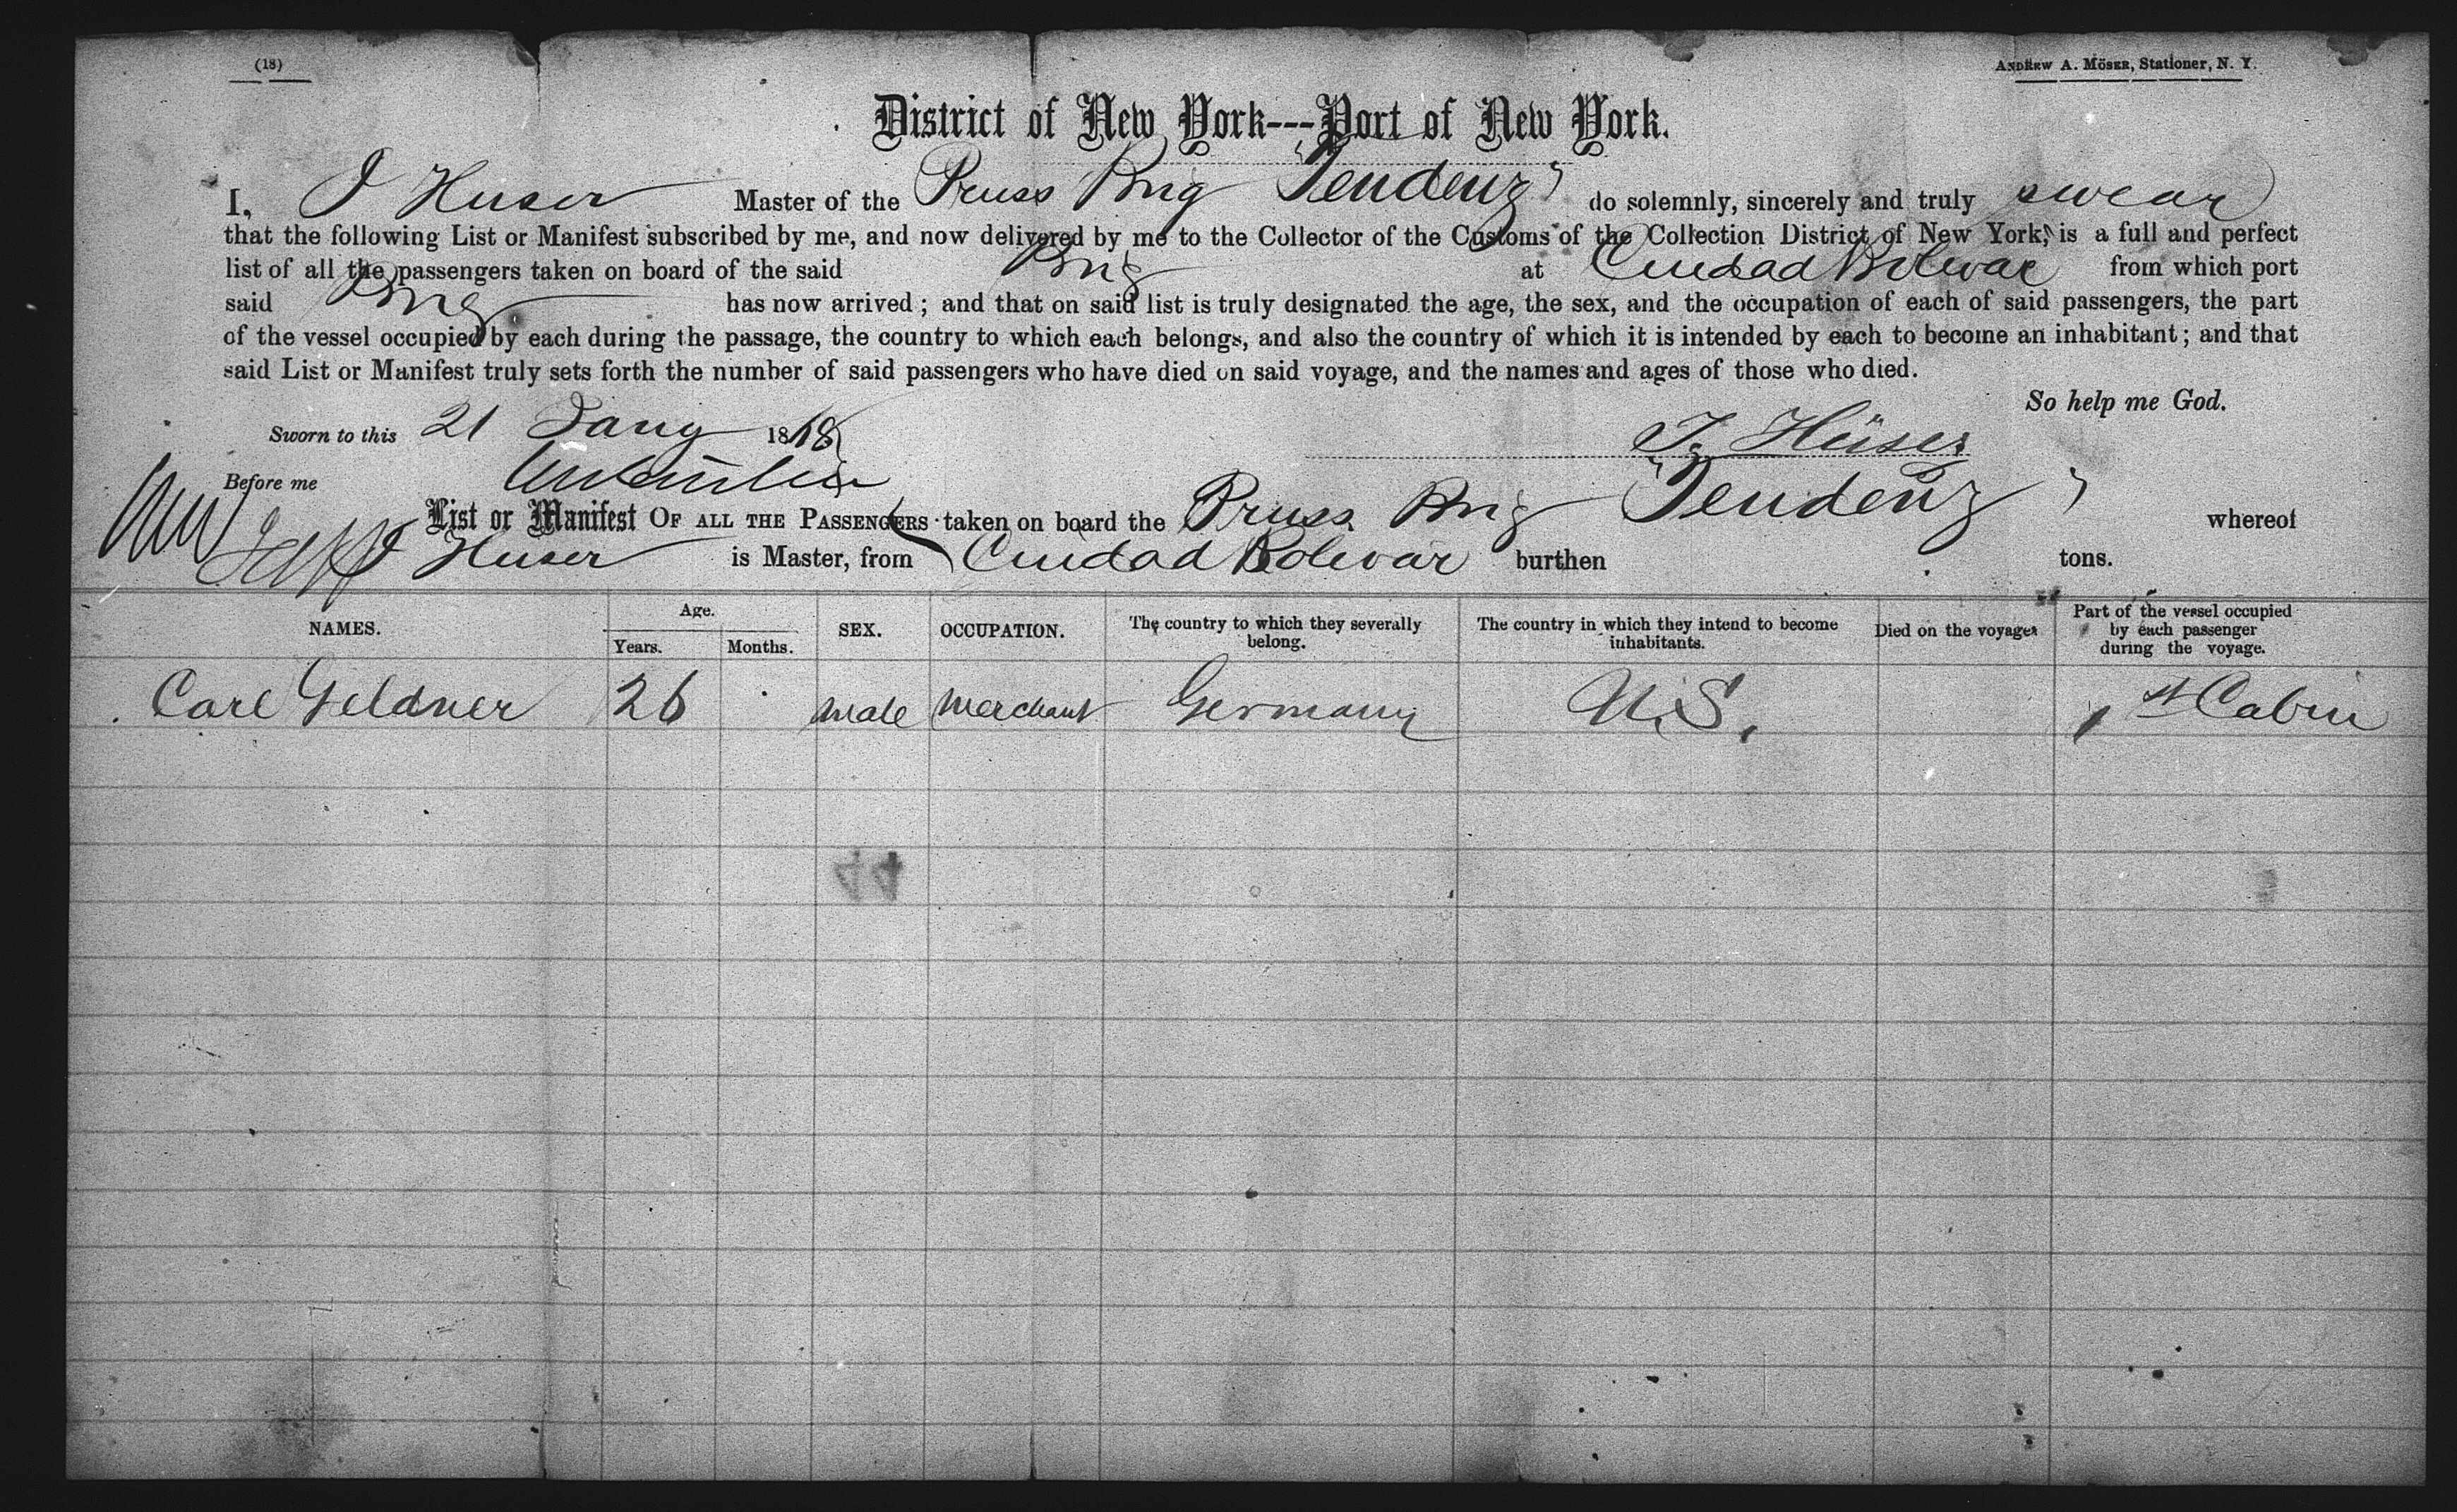 (18)
ANDREW A. MÖSER, Stationer, N. Y.
District of New York---Port of New York.
I, J Huser Master of the Pruss Brig "Tendenz" do solemnly, sincerely and truly swear
that the following List or Manifest subscribed by me, and now delivered by me to the Collector of the Customs of the Collection District of New York, is a full and perfect
list of all the passengers taken on board of the said Brig at Ciudad Bolivar from which port
said Brig has now arrived; and that on said list is truly designated the age, the sex, and the occupation of each of said passengers, the part
of the vessel occupied by each during the passage, the country to which each belongs, and also the country of which it is intended by each to become an inhabitant; and that
said List or Manifest truly sets forth the number of said passengers who have died on said voyage, and the names and ages of those who died.
So help me God.
Sworn to this 21 Jany 1868
J. Hüser
Before me
List or Manifest OF ALL THE PASSENGERS taken on board the Pruss. Brig "Tendenz" whereof
J Huser is Master, from Ciudad Bolivar burthen tons.
NAMES. Age. Years. Months. SEX. OCCUPATION. The country to which they severally belong. The country in which they intend to become inhabitants. Died on the voyage. Part of the vessel occupied by each passenger during the voyage.
Carl Geldner 26 male Merchant Germany U.S. 1st Cabin
44